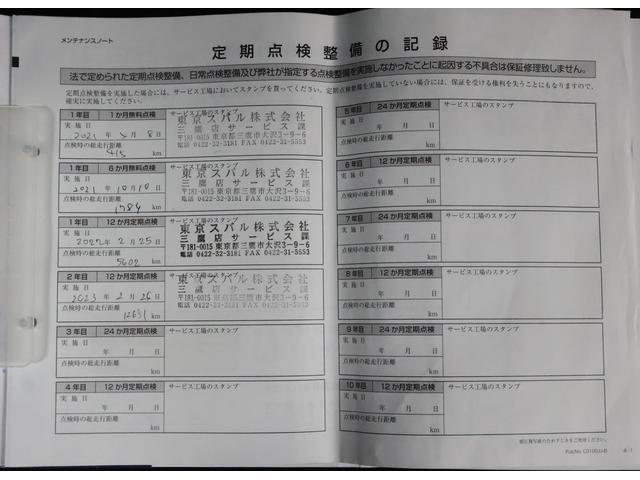 メンテナンスノート
定期点検整備の記録
法で定められた定期点検整備、日常点検整備及び弊社が指定する点検整備を実施しなかったことに起因する不具合は保証修理致しません。
定期点検整備を実施した場合には、サービス工場においてスタンプを貰ってください。定期点検整備を実施していない場合には、保証を受ける権利を失うこともなりますので、
確実に実施してください。
1年目 1か月無料点検 サービス工場のスタンプ
実施日
2021年 5月 8日
点検時の総走行距離
415 km
東京スバル株式会社
三鷹店サービス課
〒181-0015 東京都三鷹市大沢3-9-6
電話 0422-32-3181 FAX 0422-31-5553
1年目 6か月無料点検 サービス工場のスタンプ
実施日
2021年 10月 10日
点検時の総走行距離
1784 km
東京スバル株式会社
三鷹店サービス課
〒181-0015 東京都三鷹市大沢3-9-6
電話 0422-32-3181 FAX 0422-31-5553
1年目 12か月定期点検 サービス工場のスタンプ
実施日
2022年 2月 25日
点検時の総走行距離
5602 km
東京スバル株式会社
三鷹店サービス課
〒181-0015 東京都三鷹市大沢3-9-6
電話 0422-32-3181 FAX 0422-31-5553
2年目 12か月定期点検 サービス工場のスタンプ
実施日
2023年 2月 26日
点検時の総走行距離
12631 km
東京スバル株式会社
三鷹店サービス課
〒181-0015 東京都三鷹市大沢3-9-6
電話 0422-32-3181 FAX 0422-31-5553
3年目 24か月定期点検 サービス工場のスタンプ
実施日
年 月 日
点検時の総走行距離
km
4年目 12か月定期点検 サービス工場のスタンプ
実施日
年 月 日
点検時の総走行距離
km
5年目 24か月定期点検 サービス工場のスタンプ
実施日
年 月 日
点検時の総走行距離
km
6年目 12か月定期点検 サービス工場のスタンプ
実施日
年 月 日
点検時の総走行距離
km
7年目 24か月定期点検 サービス工場のスタンプ
実施日
年 月 日
点検時の総走行距離
km
8年目 12か月定期点検 サービス工場のスタンプ
実施日
年 月 日
点検時の総走行距離
km
9年目 24か月定期点検 サービス工場のスタンプ
実施日
年 月 日
点検時の総走行距離
km
10年目 12か月定期点検 サービス工場のスタンプ
実施日
年 月 日
点検時の総走行距離
km
Pub.No. C0100JJ-B 4-1